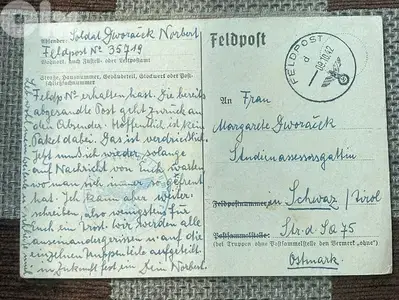 Absender: Soldat Dworaček Norbert
Feldpost № 35719
Wohnort, auch Zustell- oder Leitpostamt
Straße, Hausnummer, Gebäudeteil, Stockwerk oder Post-
schließfachnummer
Feldp. № erhalten hast. Die bereits
abgesandte Post geht zurück an
den Absender. Hoffentlich ist kein
Paket dabei. Das ist verdrießlich.
Jetzt muß ich wieder solange
auf Nachricht von Euch warten
wo man sich immer so gefreut
hat. Ich kann aber weiter
schreiben, also wenigstens für
Euch ein Trost. Wir werden alle
auseinandergerissen u. auf die
einzelnen Truppenteile aufgeteilt.
In Zukunft fest ein Dein Norbert.
Feldpost
FELDPOST
d
09.10.42
An Frau
Margarete Dworaček
Studienassessorsgattin
Schwaz / Tirol
Postsammelstelle: Str. d. SA 75
(bei Truppen ohne Postsammelstelle den Vermerk „ohne“)
Ostmark